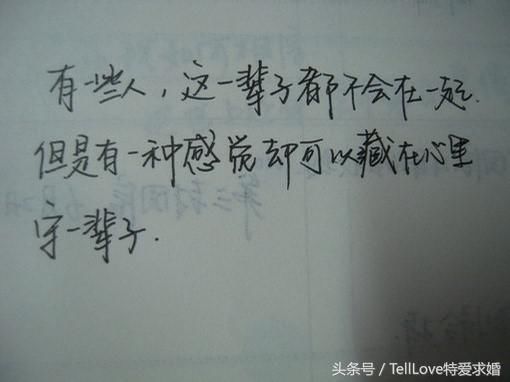 有一些人，这一辈子都不会在一起.
但是有一种感觉却可以藏在心里
守一辈子.
头条号 / TellLove特爱求婚